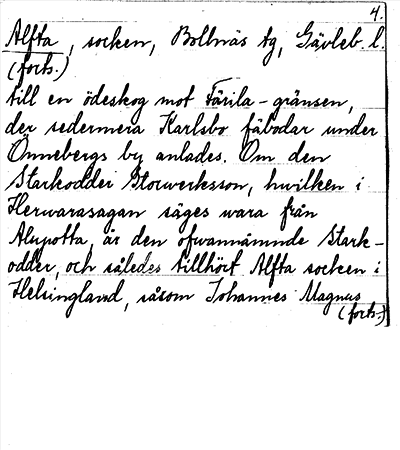 4.
Alfta, socken, Bollnäs tg, Gävleb. l.
(forts.)
till en ödeskog mot Färila-gränsen,
der sedermera Karlsbo fäbodar under
Önnebergs by anlades. Om den
Starkodder Storwerksson, hwilken i
Herwarasagan säges wara från
Alupolla, är den ofwannämnde Stark-
odder, och således tillhört Alfta socken i
Helsingland, såsom Johannes Magnus
(forts.)